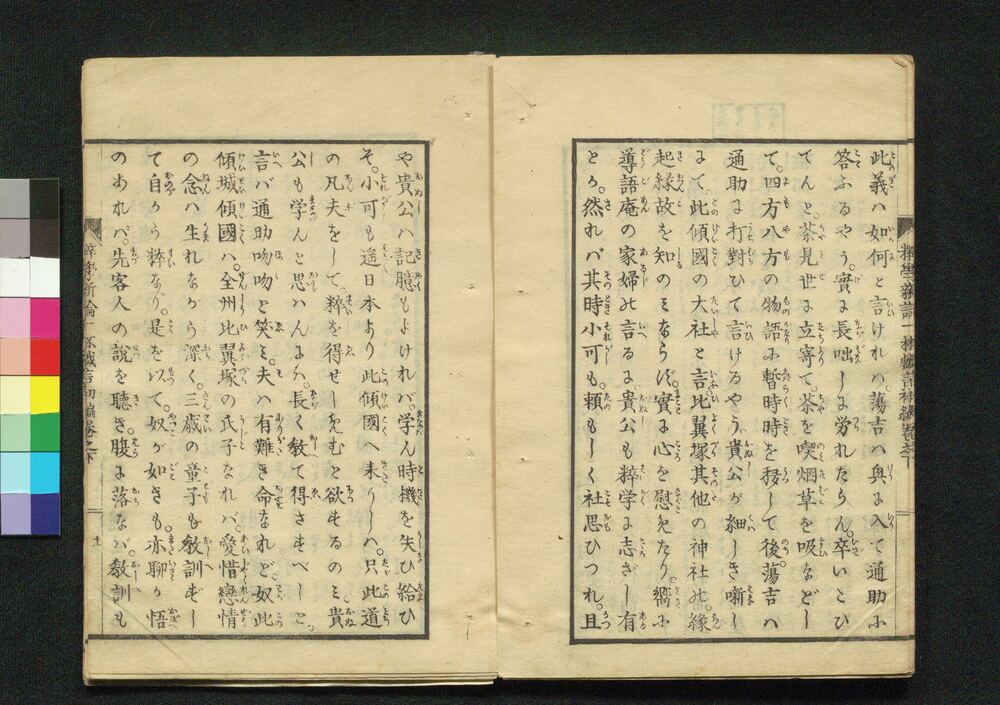 此義ハ如何と言けれバ。蕩吉ハ興に入て通助に
答ふるやう。實に長咄しに労れたらん。卒いこひ
てんと。茶見世に立寄て。茶を喫烟草を吸などし
て。四方八方の物語に暫時時を移して後。蕩吉ハ
通助に打對ひて言けるやう。貴公が細しき噺し
にて。此傾國の大社と言比翼塚其他の神社の。縁
起縁故を知のミならず。實に心を慰めたり。嚮に
導語庵の家婦の言るに。貴公も粋学に志ざし有
とか。然れバ其時小可も。頼もしく社思ひつれ。且
や貴公ハ記臆もよけれバ。学ん時機を失ひ給ひ
そ。小可も遥日本より此傾國へ来りしハ。只此道
の凡夫をして。粋を得せしめむと欲するのミ。貴
公も学んと思ハんにハ。長く教て得さすべしと。
言バ通助吻吻と笑ミ。夫ハ有難き命なれど。奴此
傾城傾國ハ。全州比翼塚の氏子なれバ。愛惜戀情
の念ハ生れながら深く。三歳の童子も教訓ずし
て自から粋なり。是を以て。奴が如きも。亦聊か悟
のあれバ。先客人の説を聴き。腹に落なバ。教訓も